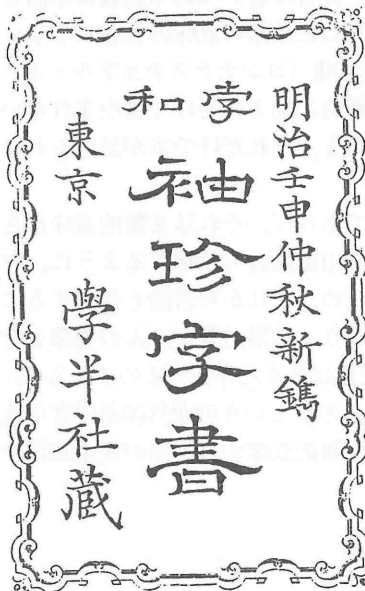 明治壬申仲秋新鐫
孛和
袖珍字書
東京 學半社藏